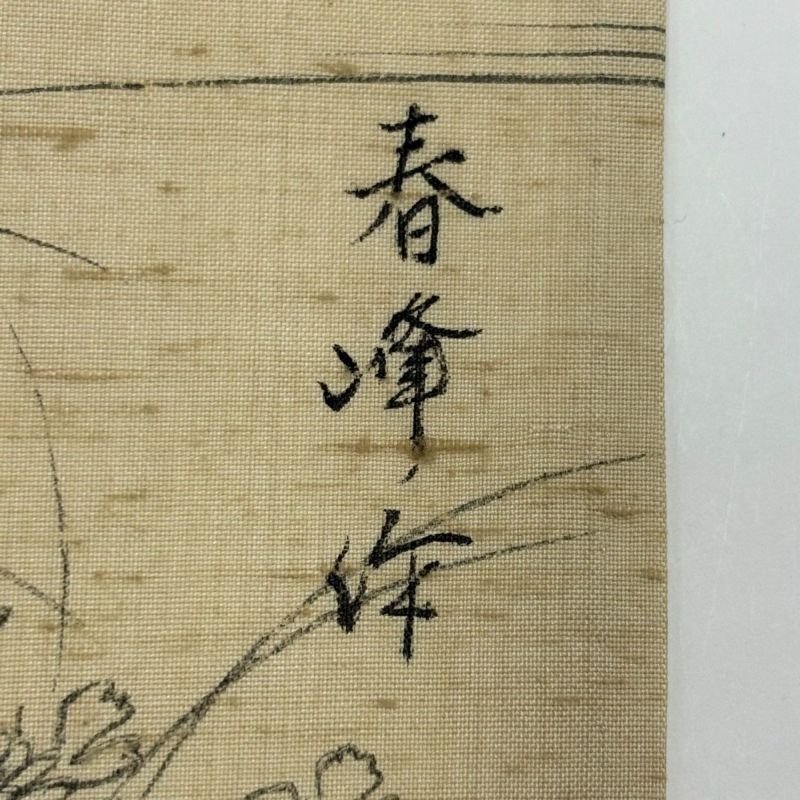 春峰作